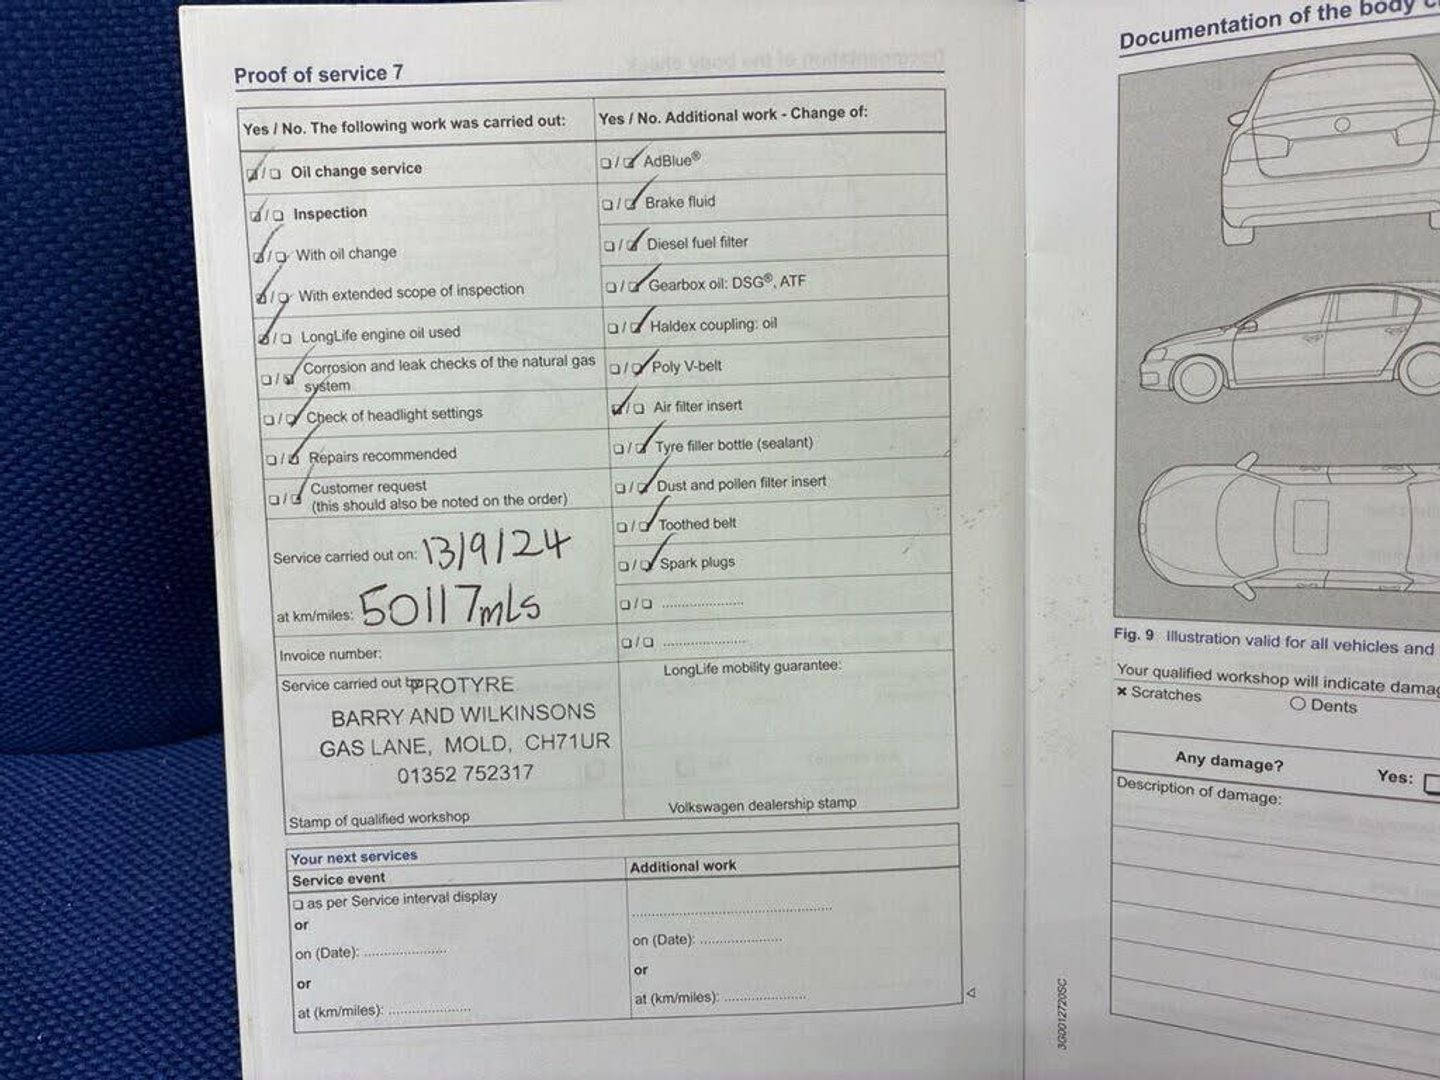 Proof of service 7
Yes / No. The following work was carried out:
☑/❏ Oil change service
☑/❏ Inspection
☑/❏ With oil change
☑/❏ With extended scope of inspection
☑/❏ LongLife engine oil used
❏/☑ Corrosion and leak checks of the natural gas
system
❏/☑ Check of headlight settings
❏/☑ Repairs recommended
❏/☑ Customer request
(this should also be noted on the order)
Service carried out on: 13/9/24
at km/miles: 50117mls
Invoice number:
Service carried out by: PROTYRE
BARRY AND WILKINSONS
GAS LANE, MOLD, CH71UR
01352 752317
Stamp of qualified workshop
Yes / No. Additional work - Change of:
❏/☑ AdBlue®
❏/☑ Brake fluid
❏/☑ Diesel fuel filter
❏/☑ Gearbox oil: DSG®, ATF
❏/☑ Haldex coupling: oil
❏/☑ Poly V-belt
☑/❏ Air filter insert
❏/☑ Tyre filler bottle (sealant)
❏/☑ Dust and pollen filter insert
❏/☑ Toothed belt
❏/☑ Spark plugs
❏/❏ ....................
❏/❏ ....................
LongLife mobility guarantee:
Volkswagen dealership stamp
Your next services
Service event
❏ as per Service interval display
or
on (Date): ....................
or
at (km/miles): ....................
Additional work
..................................................
on (Date): ....................
or
at (km/miles): ....................
Documentation of the body
Fig. 9 Illustration valid for all vehicles and
Your qualified workshop will indicate
× Scratches
○ Dents
Any damage?
Yes: ❏
Description of damage:
3G0012720SC